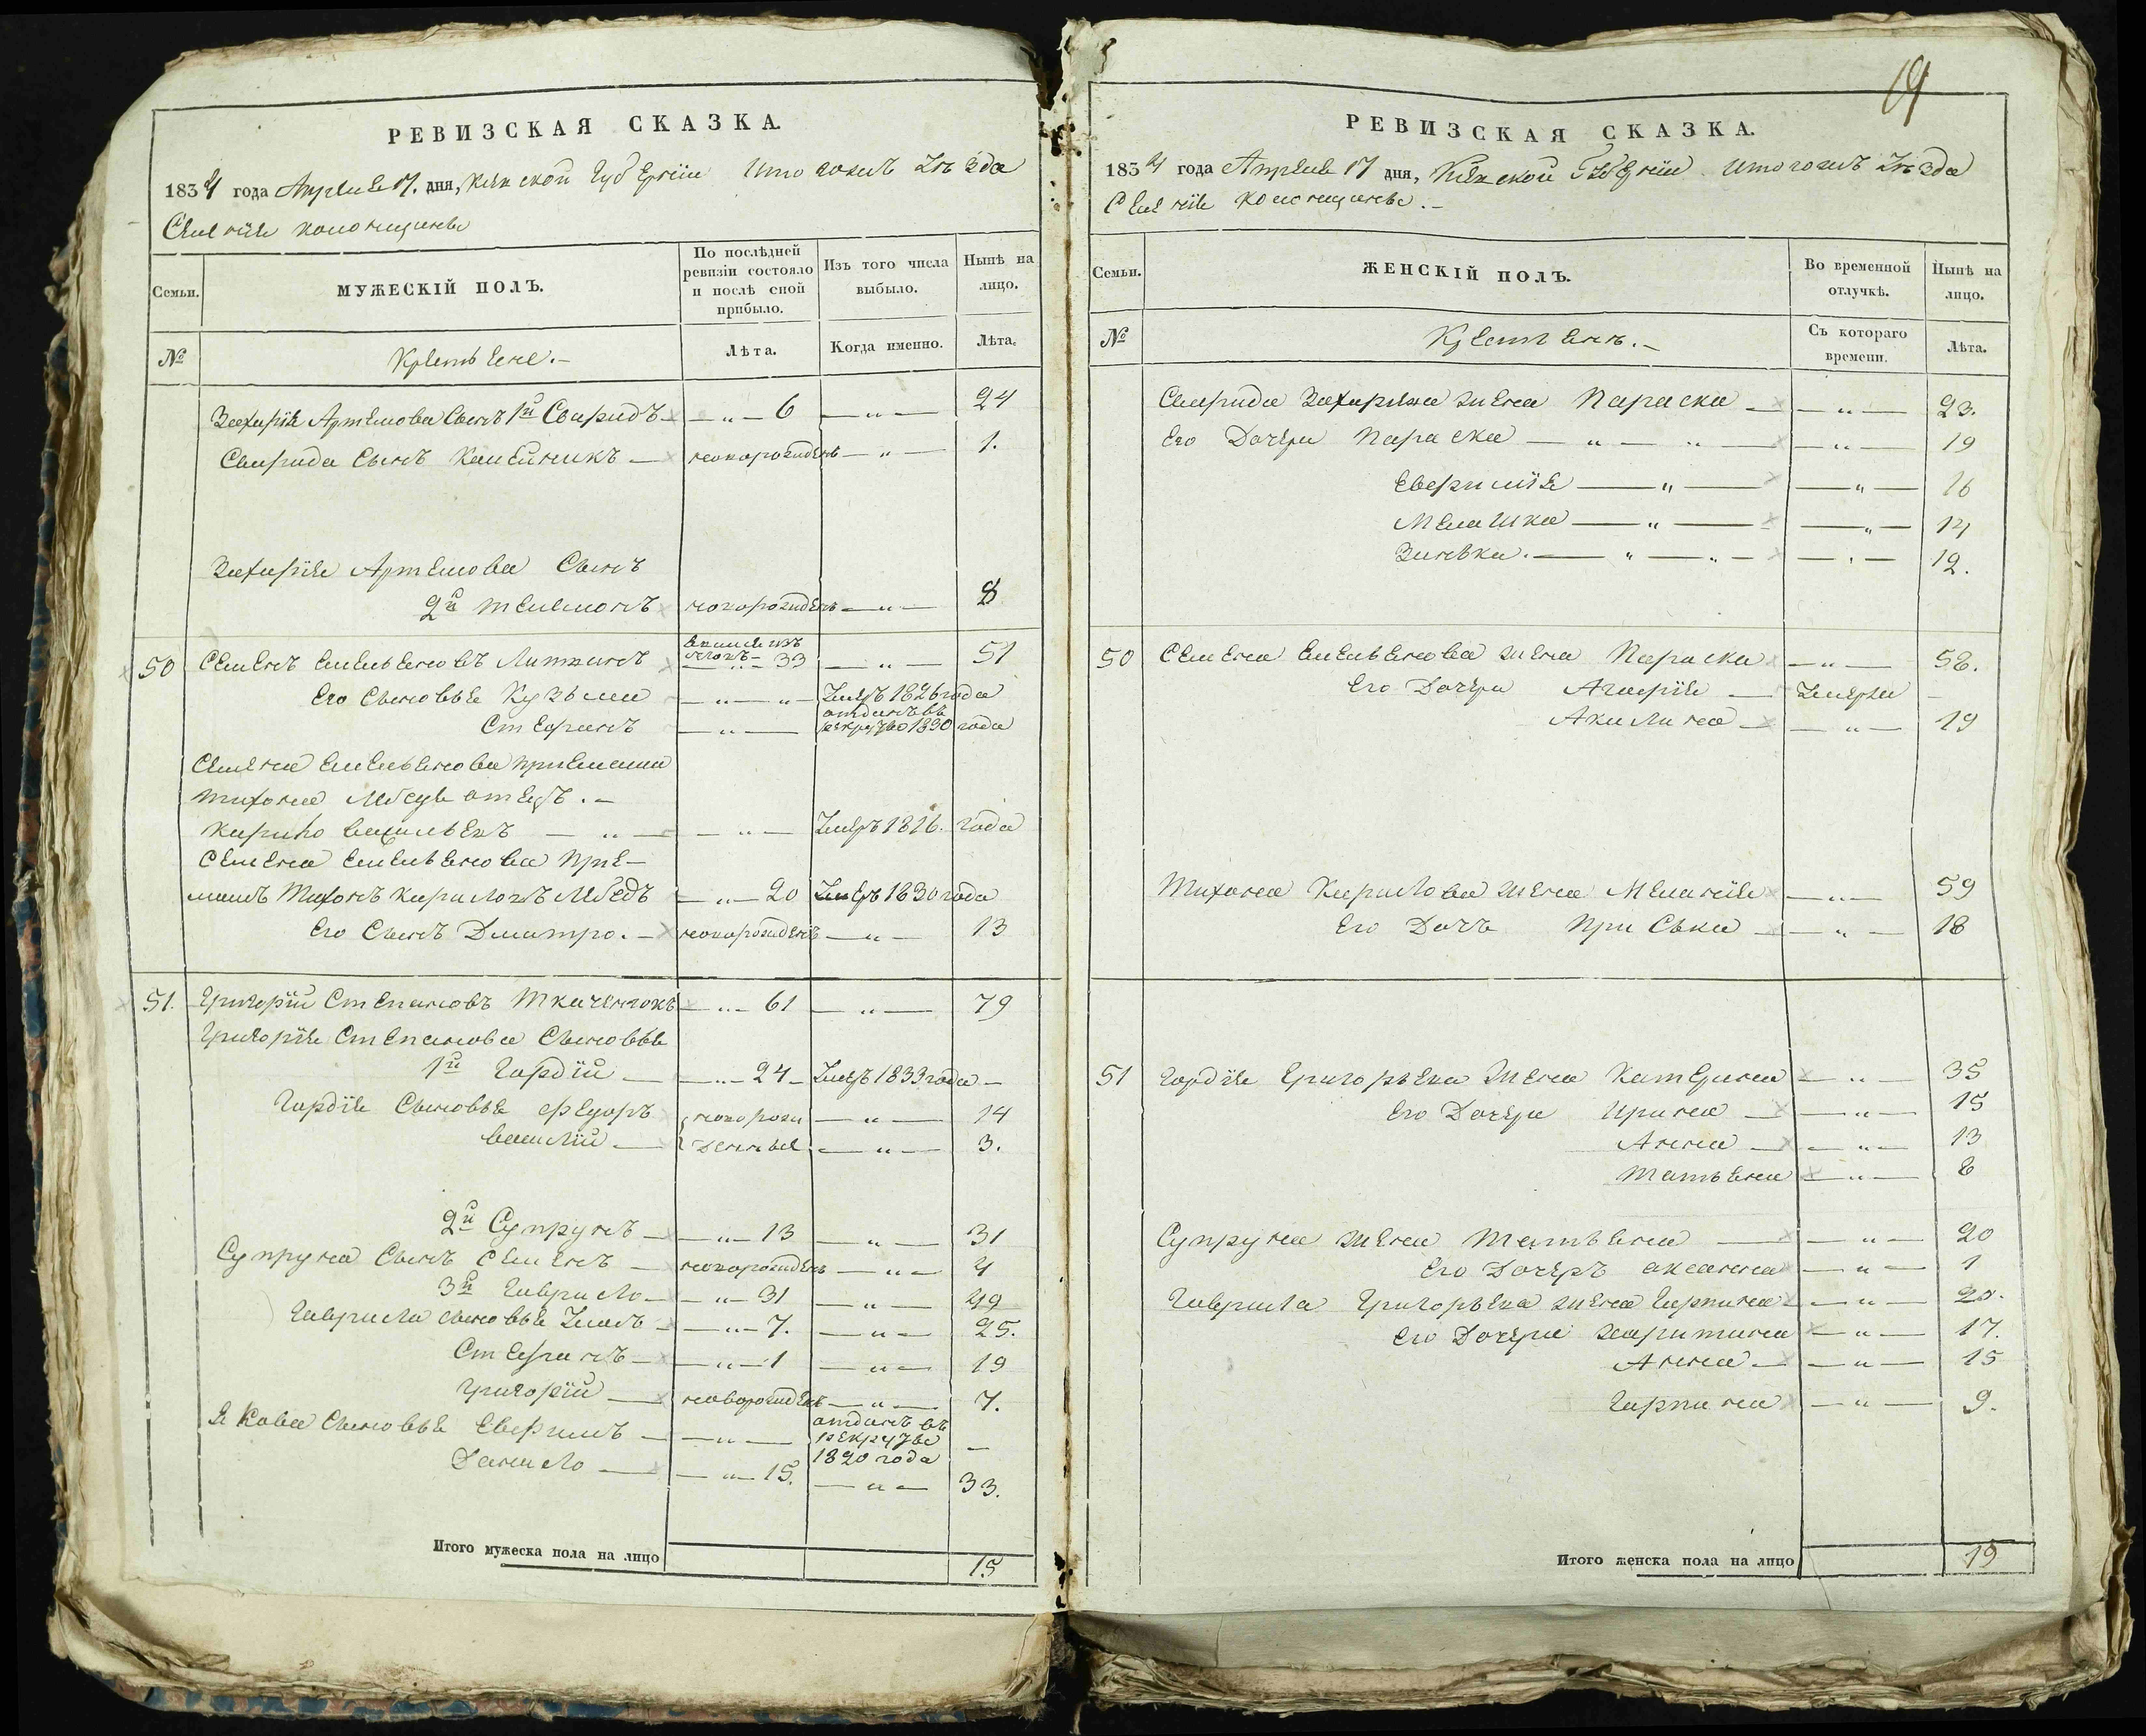 РЕВИЗСКАЯ СКАЗКА.
1834 года Апреля 17. дня, Киевской Губернии Уезда
Селения
Семьи.
МУЖЕСКІЙ ПОЛЪ.
По послѣдней ревизіи состояло и послѣ оной прибыло.
Изъ того числа выбыло.
Нынѣ на лицо.
№
Крестьяне.
Лѣта.
Когда именно.
Лѣта.
Захарія Артемова Сынъ 1й Свиридъ — „ — 6 — „ — 24
Свирида Сынъ — новорожденъ — „ — 1.
Захарія Артемова Сынъ
2й новорожденъ — „ — 8
50 Семенъ Емельяновъ — 33 — „ — 51
Его Сыновья Кузьма — „ — „ Умеръ 1826 года
Стефанъ — „ — отданъ въ рекруты 1830 года
Семена Емельянова приемыша
Тихона отецъ. —
Кирило Васильевъ — „ — — „ — Умеръ 1816. года
Семена Емельянова прие-
мышъ Тихонъ Кириловъ Лебедь — „ — 20 Умеръ 1830 года
Его Сынъ Дмитро. — новорожденъ — „ — 13
51. Григорій Степановъ Ткаченокъ — „ — 61 — „ — 79
Григорія Степанова Сыновья
1й Гордій — — „ — 24 — Умеръ 1833 года —
Гордія Сыновья Федоръ новорож — „ — 14
Василій — денные — „ — 3.
2й Супрунъ — — „ — 13 — „ — 31
Супруна Сынъ Семенъ — новорожденъ — „ — 4
3й Гаврило — — „ — 31 — „ — 49
Гаврила сыновья — „ — 7. — „ — 25.
Стефанъ — — „ — 1 — „ — 19
Григорій — новорожденъ — „ — 7.
Якова Сыновья Ефримъ — — „ — отданъ въ рекруты 1820 года —
Данило — — „ — 15. — „ — 33.
Итого мужеска пола на лицо 15
19
РЕВИЗСКАЯ СКАЗКА.
1834 года Апреля 17 дня, Киевской Губерніи Уезда
Селенія
Семьи.
ЖЕНСКІЙ ПОЛЪ.
Во временной отлучкѣ.
Нынѣ на лицо.
№
Крестьянъ. —
Съ котораго времени.
Лѣта.
Свирида Захарьева жена Параска — — „ — 23.
Его Дочери Параска — „ — „ — „ — 19
Евфимія — „ — — „ — 16
Мелашка — „ — — „ — 14
Зинька. — „ — „ — — „ — 12.
50 Семена Емельянова жена Параска — „ — 58.
Его Дочери Агафія — Умерла —
Акилина — — „ — 19
Тихона Кирилова жена Меланія — „ — 59
Его Дочь Приська — — „ — 18
51 Гордія Григорьева Жена Катерина — „ — 35
Его Дочери Ирина — — „ — 15
Анна — — „ — 13
Татьяна — „ — 8
Супруна жена Татьяна — — „ — 20
Его Дочерь Оксанна — „ — 1
Гаврила Григорьева жена Гарпина — „ — 20.
Его Дочери Харитина — „ — 17.
Анна — — „ — 15
Гарпина — „ — 9.
Итого женска пола на лицо 19